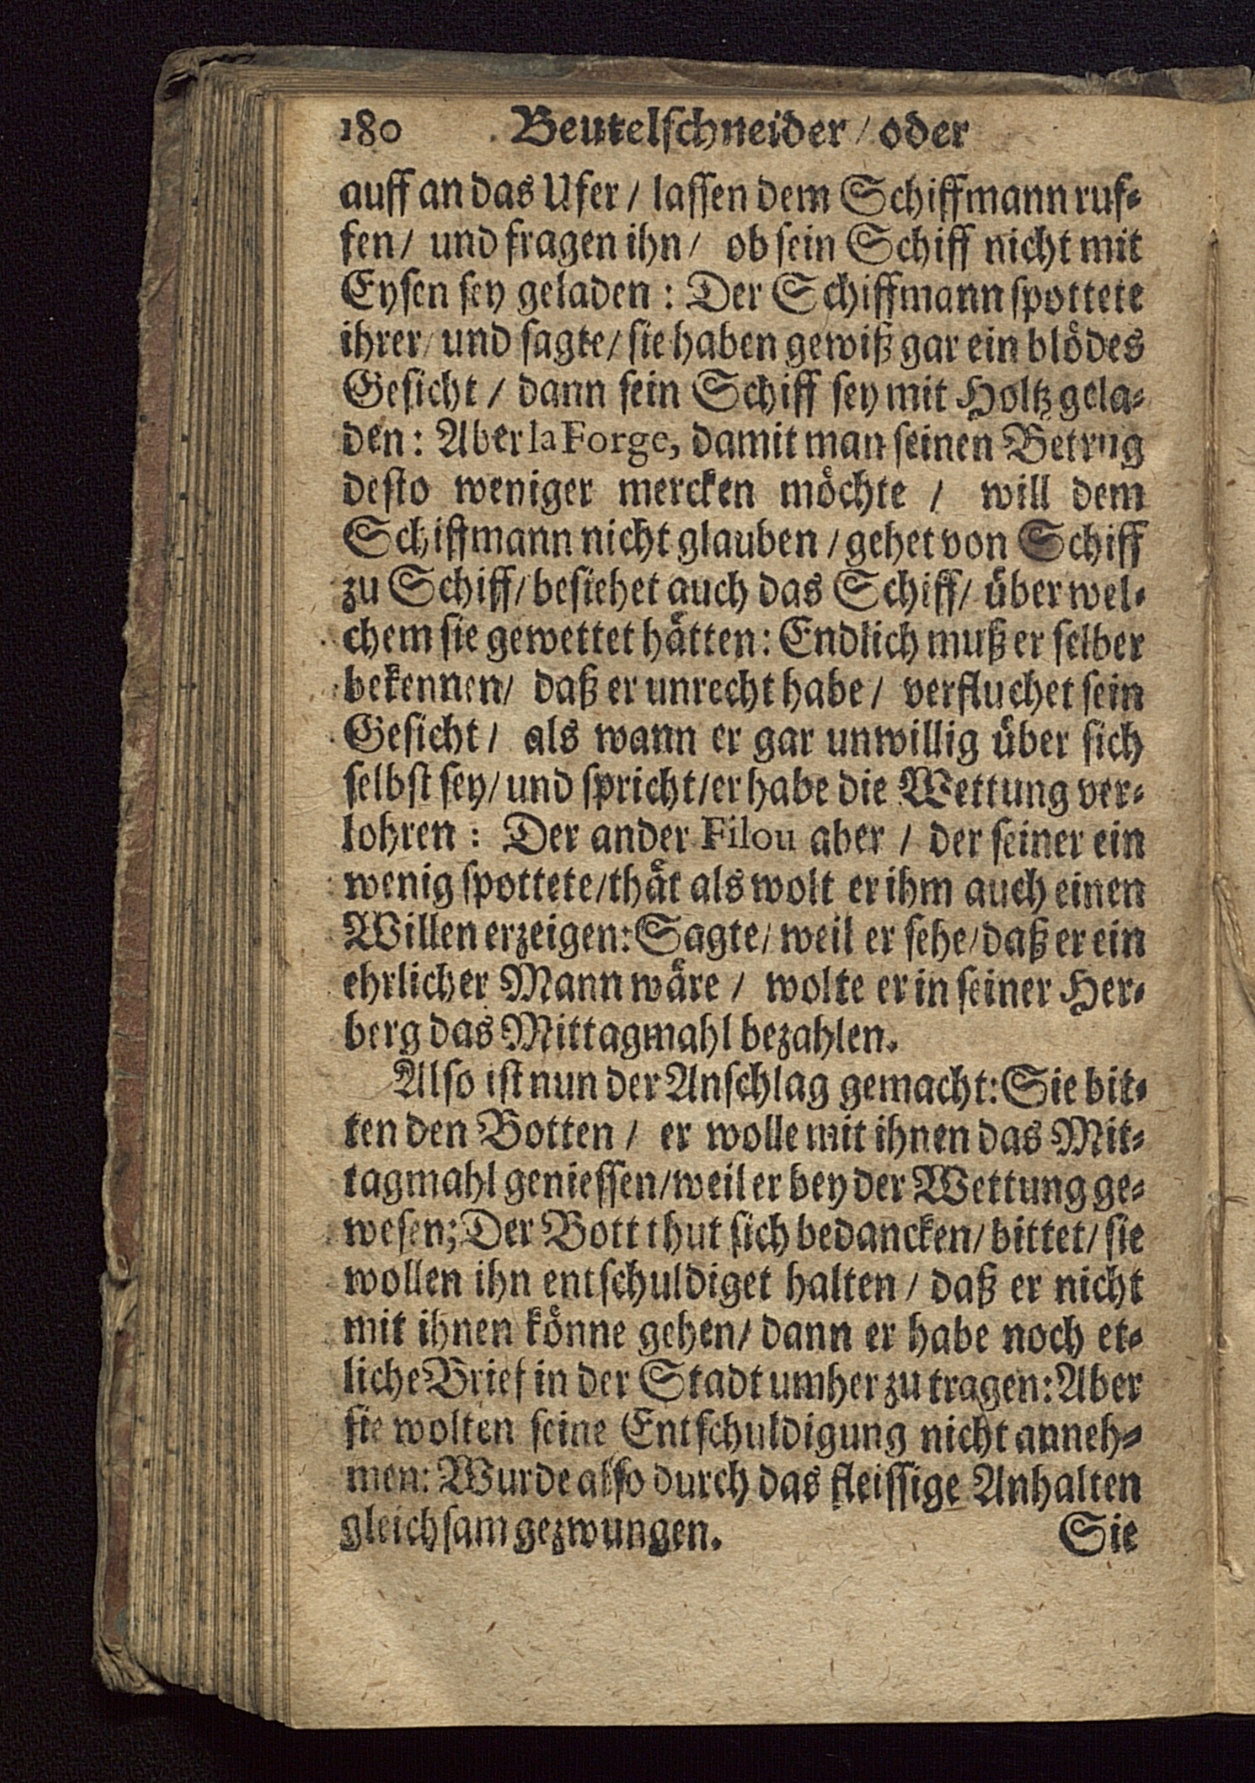 180 Beutelschneider / oder
auff an das Ufer / lassen dem Schiffmann ruf-
fen / und fragen ihn / ob sein Schiff nicht mit
Eysen sey geladen : Der Schiffmann spottete
ihrer / und sagte / sie haben gewiß gar ein blödes
Gesicht / dann sein Schiff sey mit Holtz gela-
den : Aber la Forge, damit man seinen Betrug
desto weniger mercken möchte / will dem
Schiffmann nicht glauben / gehet von Schiff
zu Schiff / besiehet auch das Schiff / über wel-
chem sie gewettet hätten : Endlich muß er selber
bekennen / daß er unrecht habe / verfluchet sein
Gesicht / als wann er gar unwillig über sich
selbst sey / und spricht / er habe die Wettung ver-
lohren : Der ander Filou aber / der seiner ein
wenig spottete / thät als wolt er ihm auch einen
Willen erzeigen : Sagte / weil er sehe / daß er ein
ehrlicher Mann wäre / wolte er in seiner Her-
berg das Mittagmahl bezahlen.
Also ist nun der Anschlag gemacht : Sie bit-
ten den Botten / er wolle mit ihnen das Mit-
tagmahl geniessen / weil er bey der Wettung ge-
wesen; Der Bott thut sich bedancken / bittet / sie
wollen ihn entschuldiget halten / daß er nicht
mit ihnen könne gehen / dann er habe noch et-
liche Brief in der Stadt umher zu tragen : Aber
sie wolten seine Entschuldigung nicht anneh-
men : Wurde also durch das fleissige Anhalten
gleichsam gezwungen. Sie